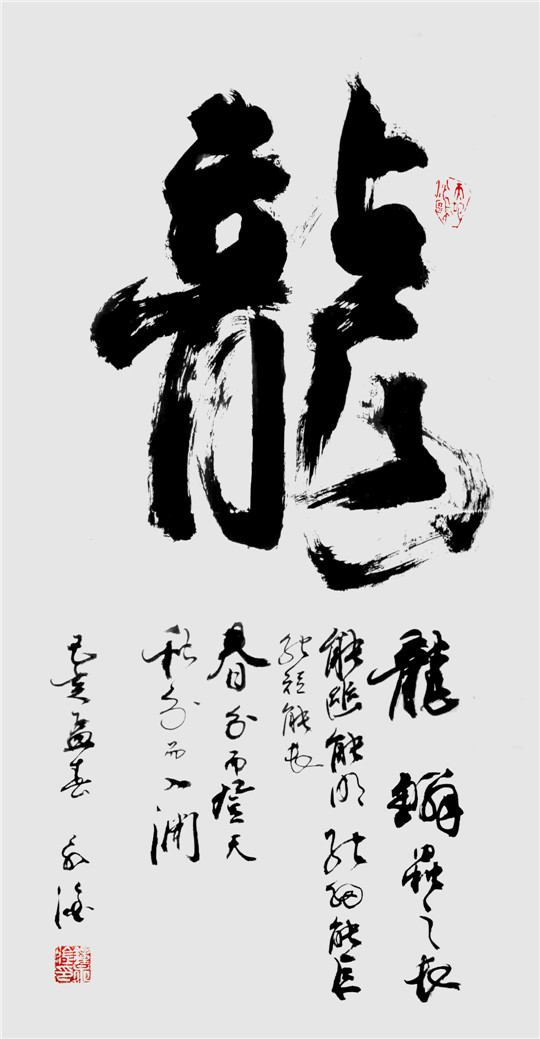 龍
龍 鱗蟲之長
能幽能明能細能巨
能短能長
春分而登天
秋分而入淵
己亥孟春